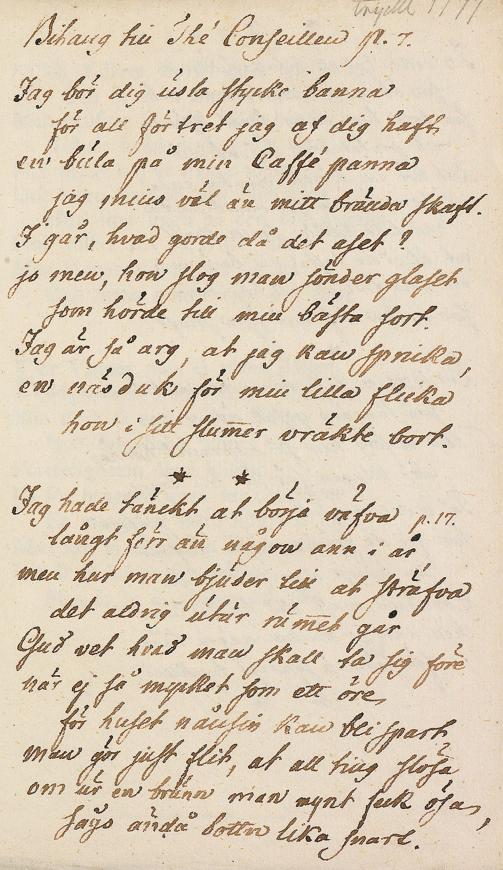 tryckt 1777
Bihang till Thé Conseillen p. 7.
Jag bör dig usla stycke banna
för all förtret jag af dig haft,
en bula på min Caffé panna
jag mins väl än mitt brända skaft.
I går, hvad gorde då det aset?
jo men, hon slog man sönder glaset
som hörde till min bästa sort.
Jag är så arg, at jag kan spricka,
en näsduk för min lilla flicka
hon i sitt slum̅er vräkte bort.
* *
Jag hade tänckt at börja väfva p. 17.
långt förr än någon ann i år
men hur man bjuder till at sträfva
det aldrig utur rum̅et går
Gud vet hvad man skall ta sig före
när ej så mycket som ett öre
för huset nånsin kan bli spart,
man gör just flit, at all ting slösa
om ur en brunn man mynt fick ösa,
sågs ändå bottn lika snart.